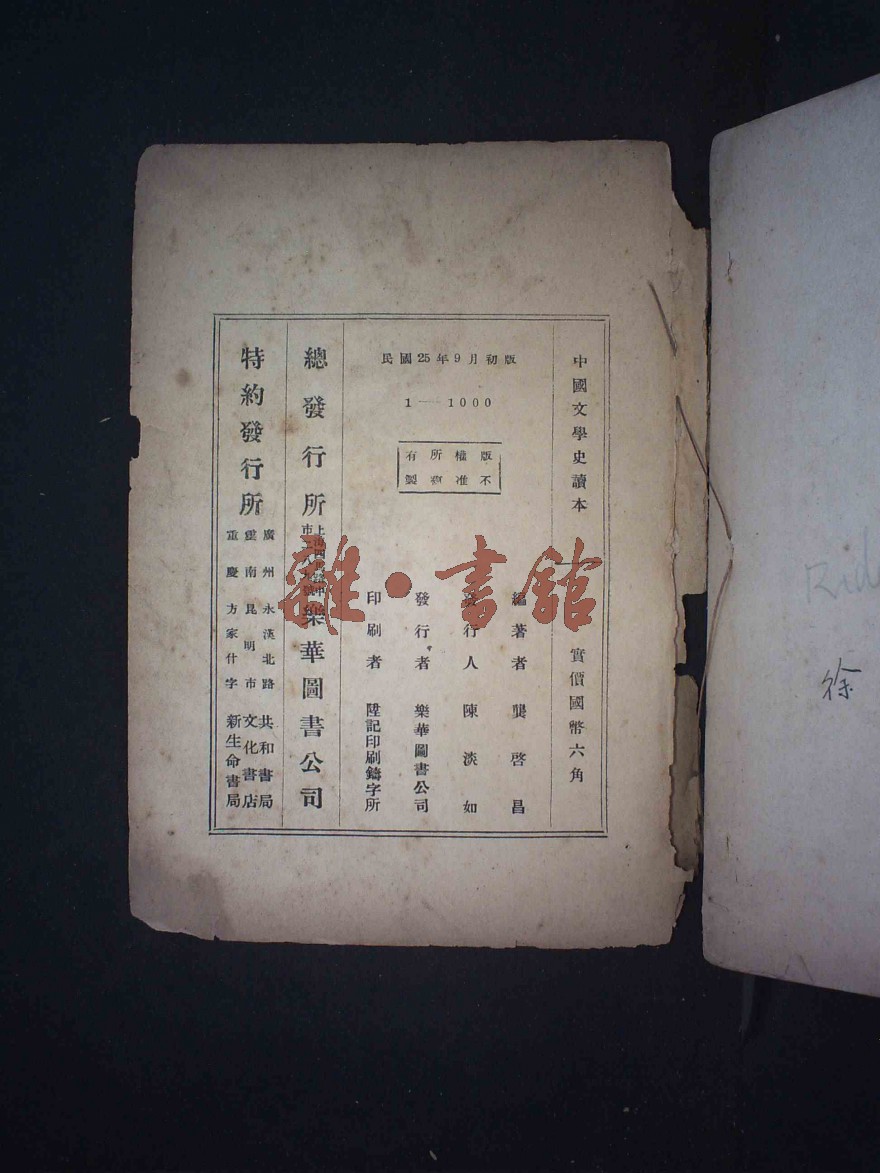 中國文學史讀本
實價國幣六角
民國25年9月初版
1—1000
版權所有
不准翻製
編著者 龔啓昌
發行人 陳淡如
發行者 樂華圖書公司
印刷者 陞記印刷鑄字所
總發行所
樂華圖書公司
特約發行所
廣州永漢北路 共和書局
雲南昆明市 文化書店
重慶方家什字 新生命書局
雜·書館
徐